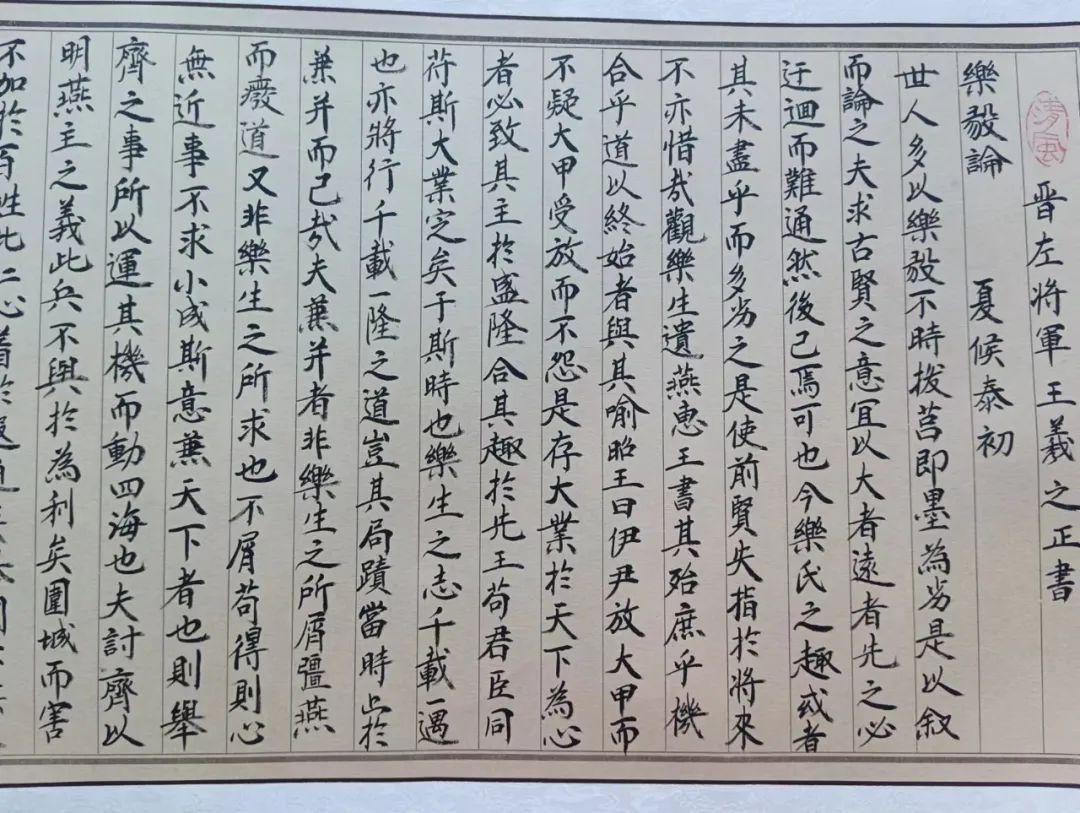 清风
晋左将軍王羲之正書
樂毅論 夏候泰初
世人多以樂毅不時拔莒即墨為劣是以叙
而論之夫求古賢之意宜以大者遠者先之必
迂迴而難通然後已焉可也今樂氏之趣或者
其未盡乎而多劣之是使前賢失指於將來
不亦惜哉觀樂生遺燕惠王書其殆庶乎機
合乎道以終始者與其喻昭王曰伊尹放大甲而
不疑大甲受放而不怨是存大業於天下為心
者必致其主於盛隆合其趣於先王苟君臣同
苻斯大業定矣于斯時也樂生之志千載一遇
也亦將行千載一隆之道豈其局蹟當時止於
兼并而已哉夫兼并者非樂生之所屑彊燕
而癈道又非樂生之所求也不屑苟得則心
無近事不求小成斯意兼天下者也則舉
齊之事所以運其機而動四海也夫討齊以
明燕主之義此兵不興於為利矣圍城而害
不加於百姓此仁心著於遐迩